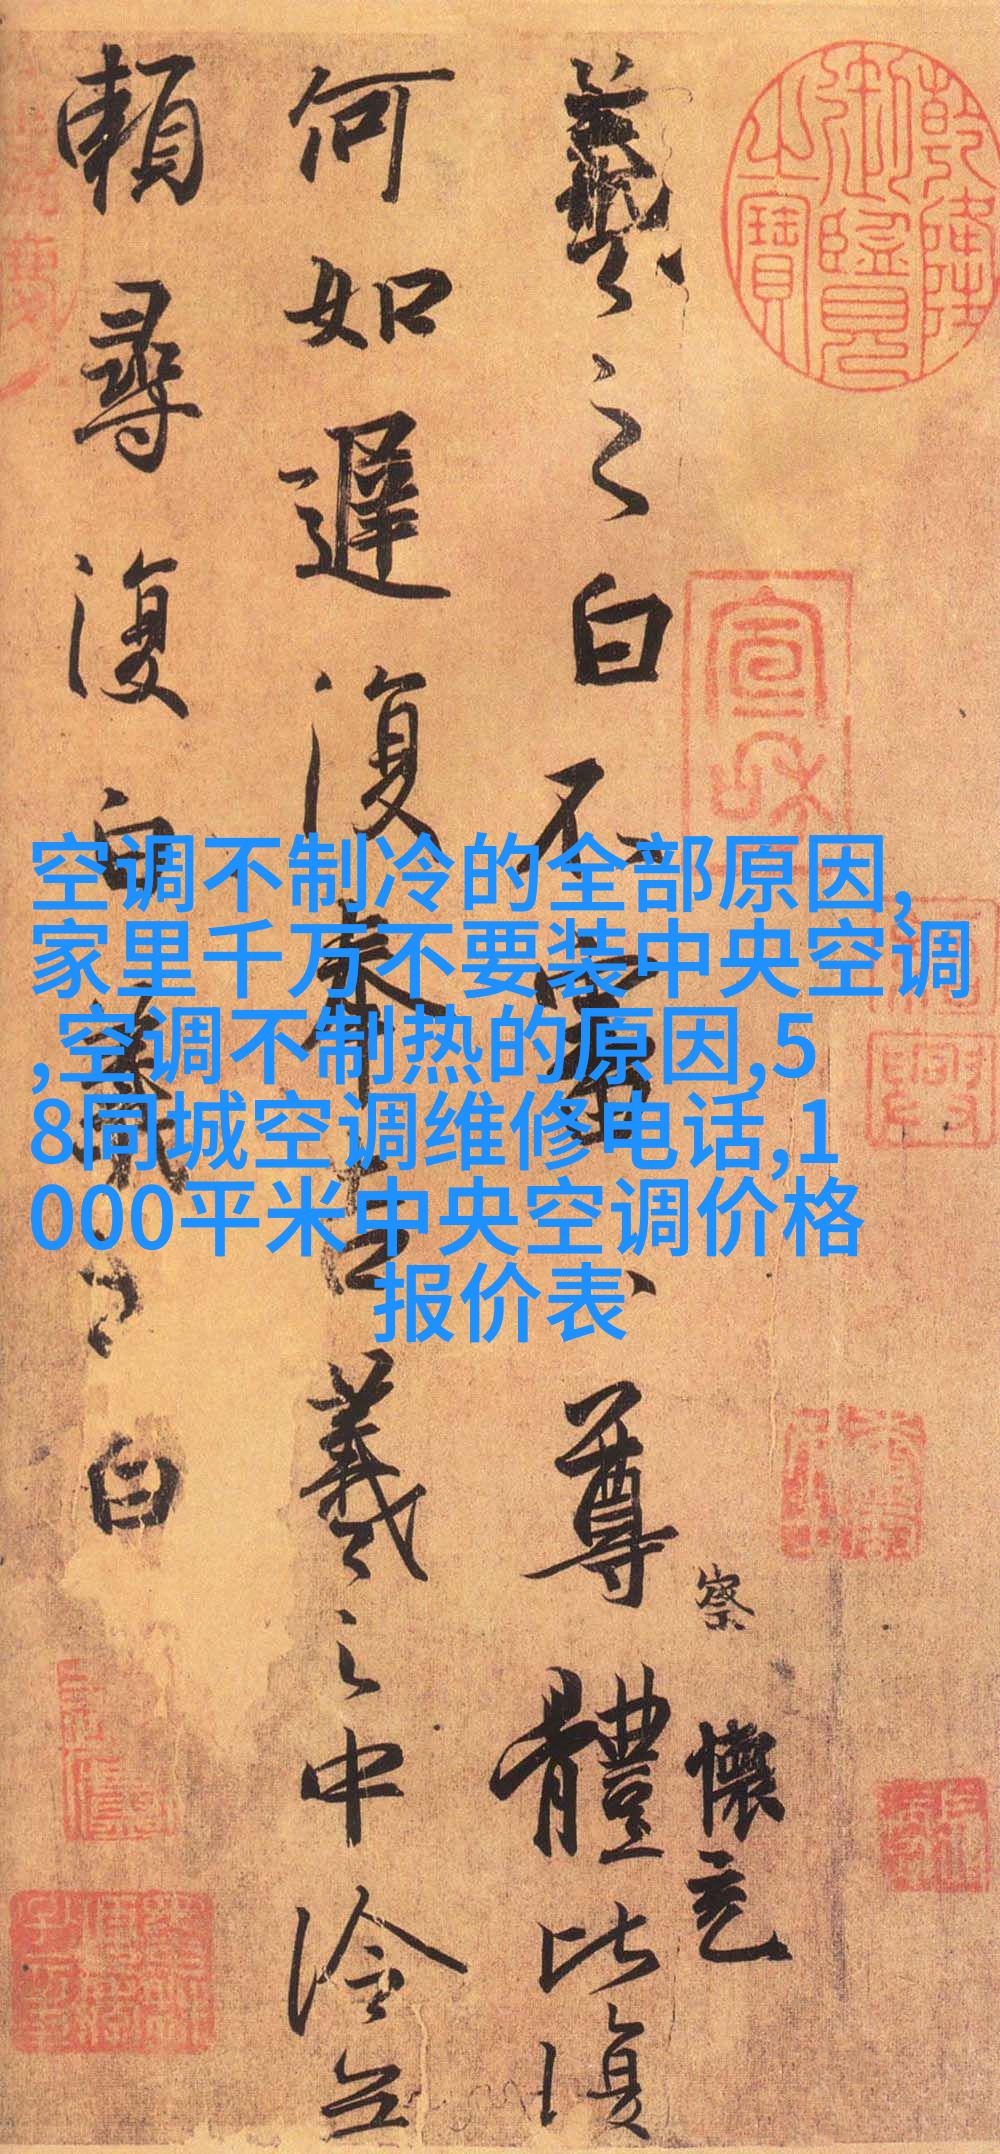 乾隆御覽之寶
宣和
察
懷充
羲之白不審尊體比復
何如遲復奉告羲之中冷無
賴尋復白羲之白
空调不制冷的全部原因,
家里千万不要装中央空调
,空调不制热的原因,5
8同城空调维修电话,1
000平米中央空调价格
报价表